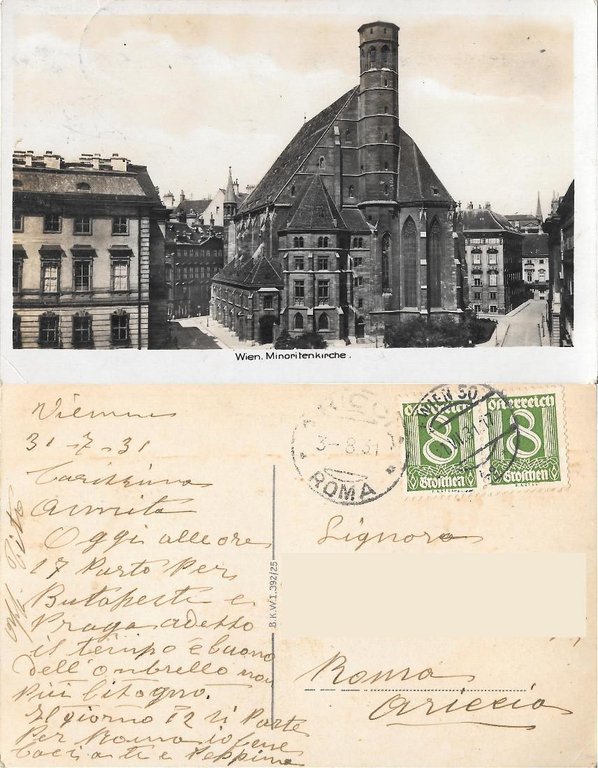 Wien. Minoritenkirche.
Vienna
31-7-31
Carissima
Annita
Oggi alle ore
17 Parto Per
Butapest e
Praga adesso
il tempo è buono
dell'onbrello non
Più bisogno.
Il giorno 12 si Parte
Per Roma io bene
Baci a te e Peppino
Aff. Tito
B.K.W.I. 392/25
ARICCIA
3-8.31
ROMA
WIEN 50
Österreich Österreich
8 8
Groschen Groschen
Signora
Roma
Ariccia